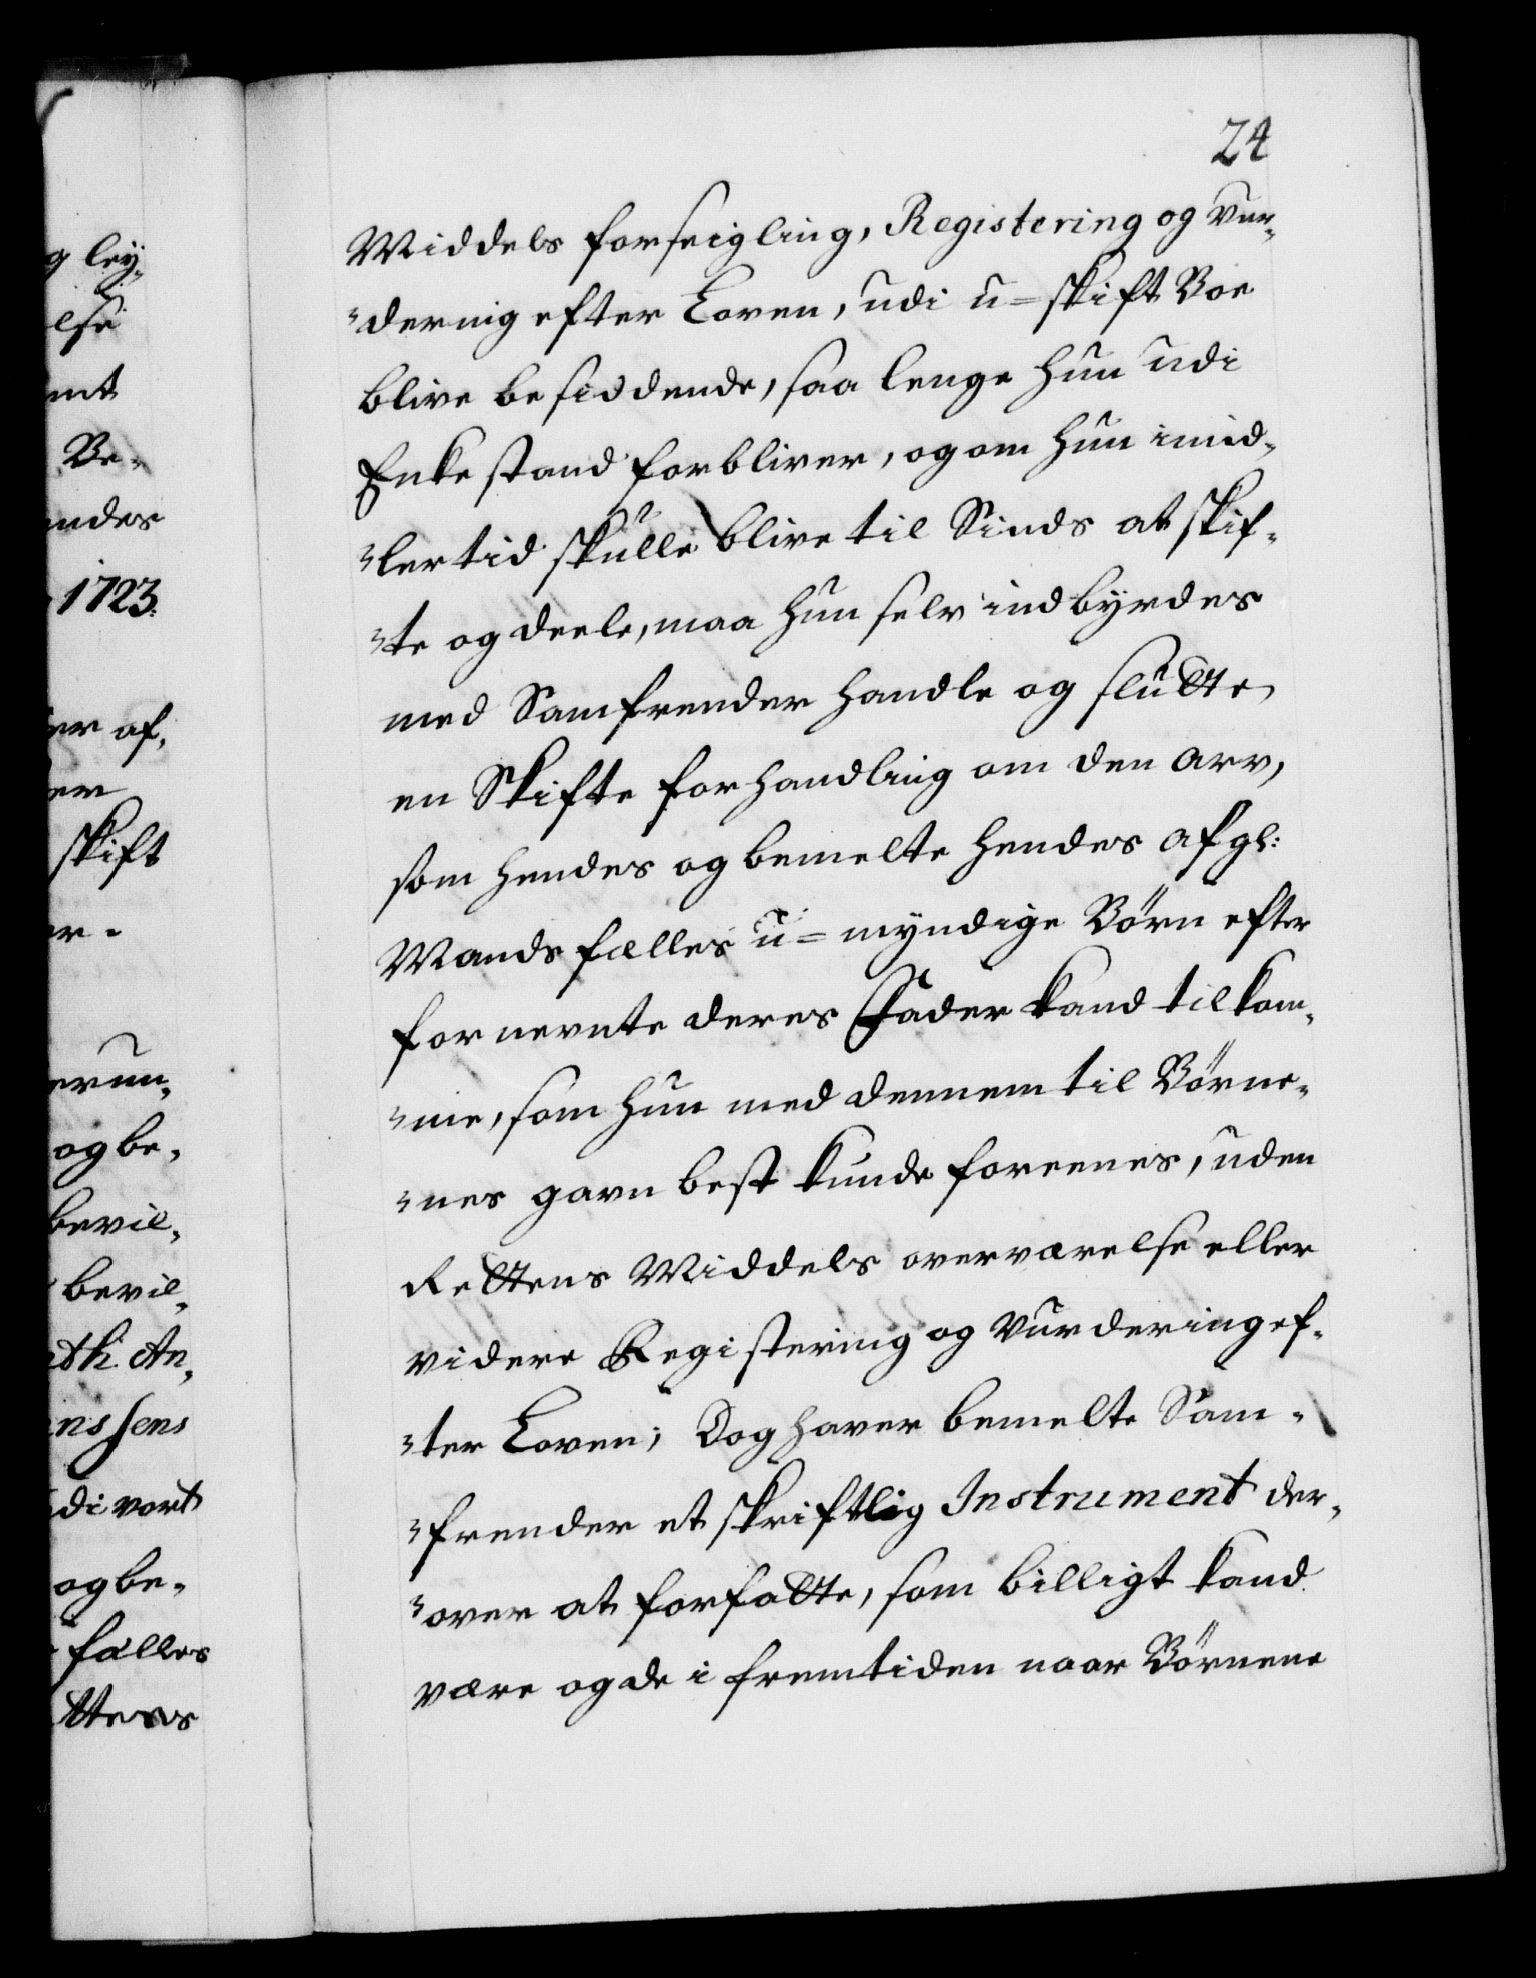 24
Middels forseigling, Registering og vur¬
"dering efter Loven, udi u=skift Boe
blive besiddende, saa lenge hun udi
Enkestand forbliver, og om hun imid¬
"lertid skulle blive til Sinds at skif¬
"te og deele, maa hun selv indbyrdes
med Samfrender handle og slutte
en Skifte forhandling om den arv,
som hendes og bemelte hendes afgl:
Mands fælles u=myndige Börn efter
fornevnte deres Fader kand tilkom¬
"me, som hun med dennem til Börne¬
"nes gavn best kunde foreenes, uden
Rettens Middels overværelse eller
videre Registering og Vurdering ef¬
"ter Loven; Dog haver bemelte Sam¬
"frender et skriftlig Instrument der¬
"over at forfatte, som billigt kand
være og de i fremtiden naar Börnene
g ley¬
else
mt
Be¬
endes
1723.
er af¬
er
skift
er¬
erun¬
og be¬
bevil¬
bevil¬
eth. An¬
ns sens
di vort
og be¬
fælles
ttens